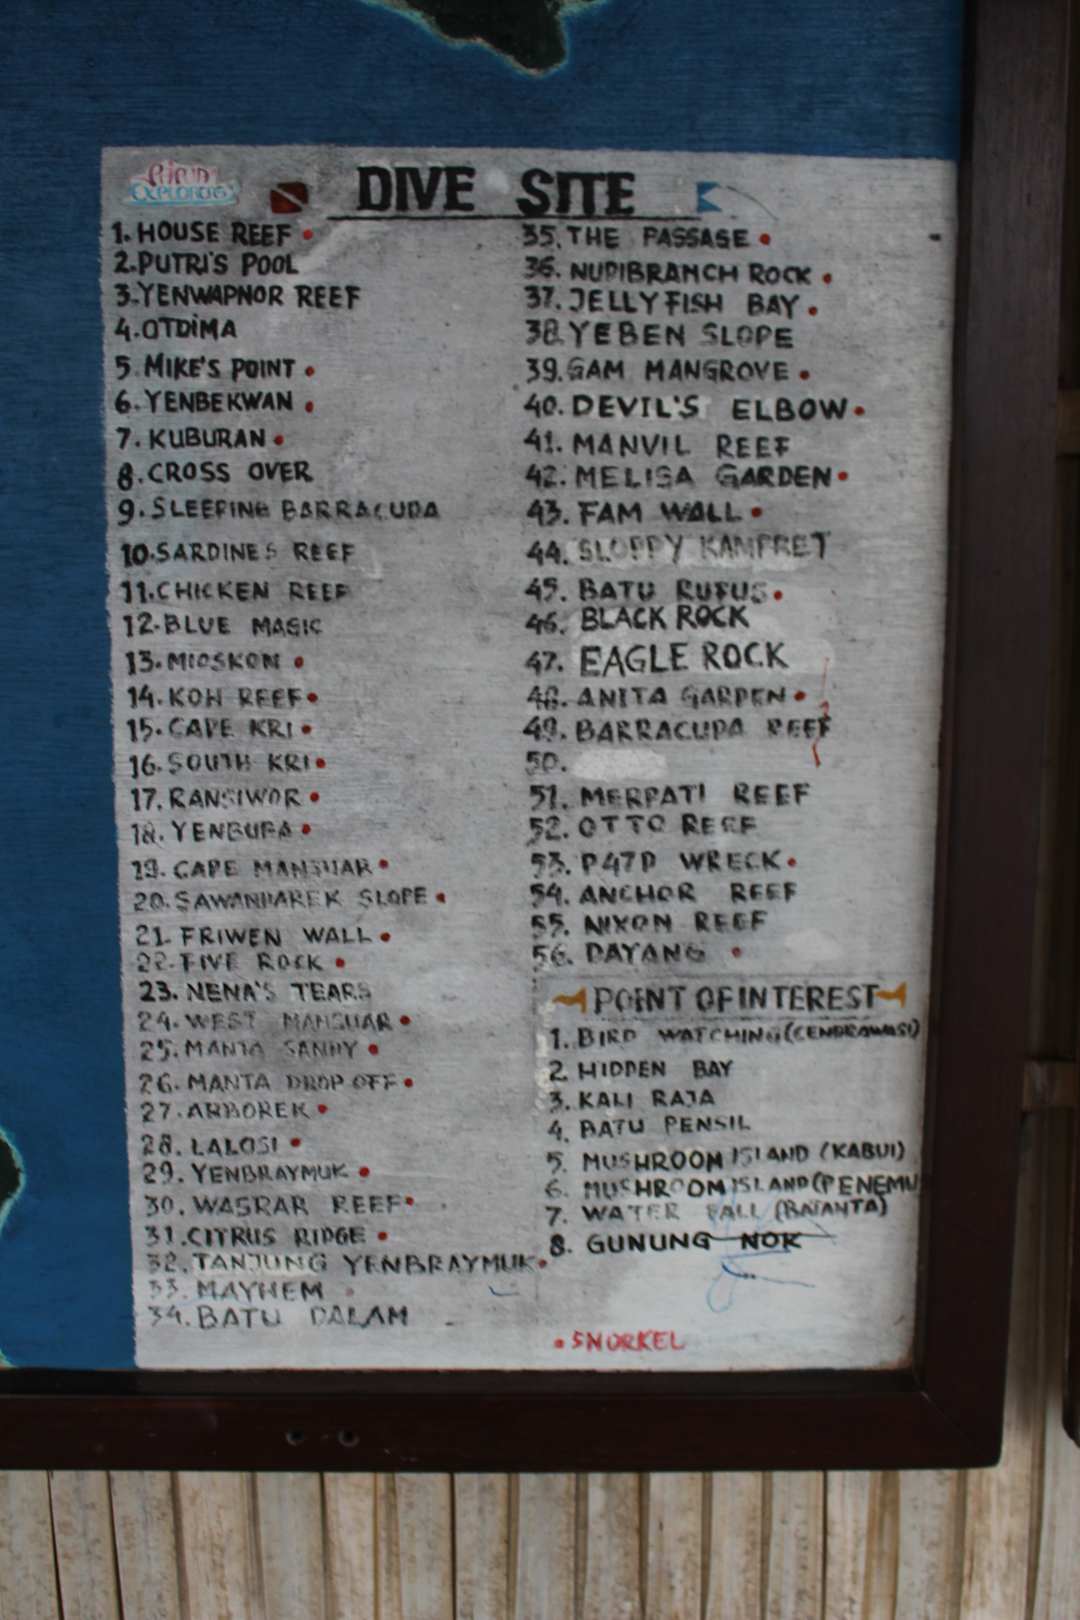 DIVE SITE
1. HOUSE REEF •
2. PUTRI'S POOL
3. YENWAPNOR REEF
4. OTDIMA
5. MIKE'S POINT •
6. YENBEKWAN •
7. KUBURAN •
8. CROSS OVER
9. SLEEPING BARRACUDA
10. SARDINES REEF
11. CHICKEN REEF
12. BLUE MAGIC
13. MIOSKON •
14. KOH REEF •
15. CAPE KRI •
16. SOUTH KRI •
17. RANSIWOR •
18. YENBUBA •
19. CAPE MANSUAR •
20. SAWANDAREK SLOPE •
21. FRIWEN WALL •
22. FIVE ROCK •
23. NENA'S TEARS
24. WEST MANSUAR •
25. MANTA SANDY •
26. MANTA DROP OFF •
27. ARBOREK •
28. LALOSI •
29. YENBRAYMUK •
30. WASRAR REEF •
31. CITRUS RIDGE •
32. TANJUNG YENBRAYMUK •
33. MAYHEM •
34. BATU DALAM
35. THE PASSAGE •
36. NUDIBRANCH ROCK •
37. JELLY FISH BAY •
38. YEBEN SLOPE
39. GAM MANGROVE •
40. DEVIL'S ELBOW •
41. MANVIL REEF
42. MELISA GARDEN •
43. FAM WALL •
44. SLOPPY KAMPRET
45. BATU RUFUS •
46. BLACK ROCK
47. EAGLE ROCK
48. ANITA GARDEN •
49. BARRACUDA REEF
50.
51. MERPATI REEF
52. OTTO REEF
53. P47D WRECK •
54. ANCHOR REEF
55. NIXON REEF
56. DAYANG •
POINT OF INTEREST
1. BIRD WATCHING (CENDRAWASI)
2. HIDDEN BAY
3. KALI RAJA
4. BATU PENSIL
5. MUSHROOM ISLAND (KABUI)
6. MUSHROOM ISLAND (PENEMU
7. WATER FALL (BATANTA)
8. GUNUNG NOK
• SNORKEL